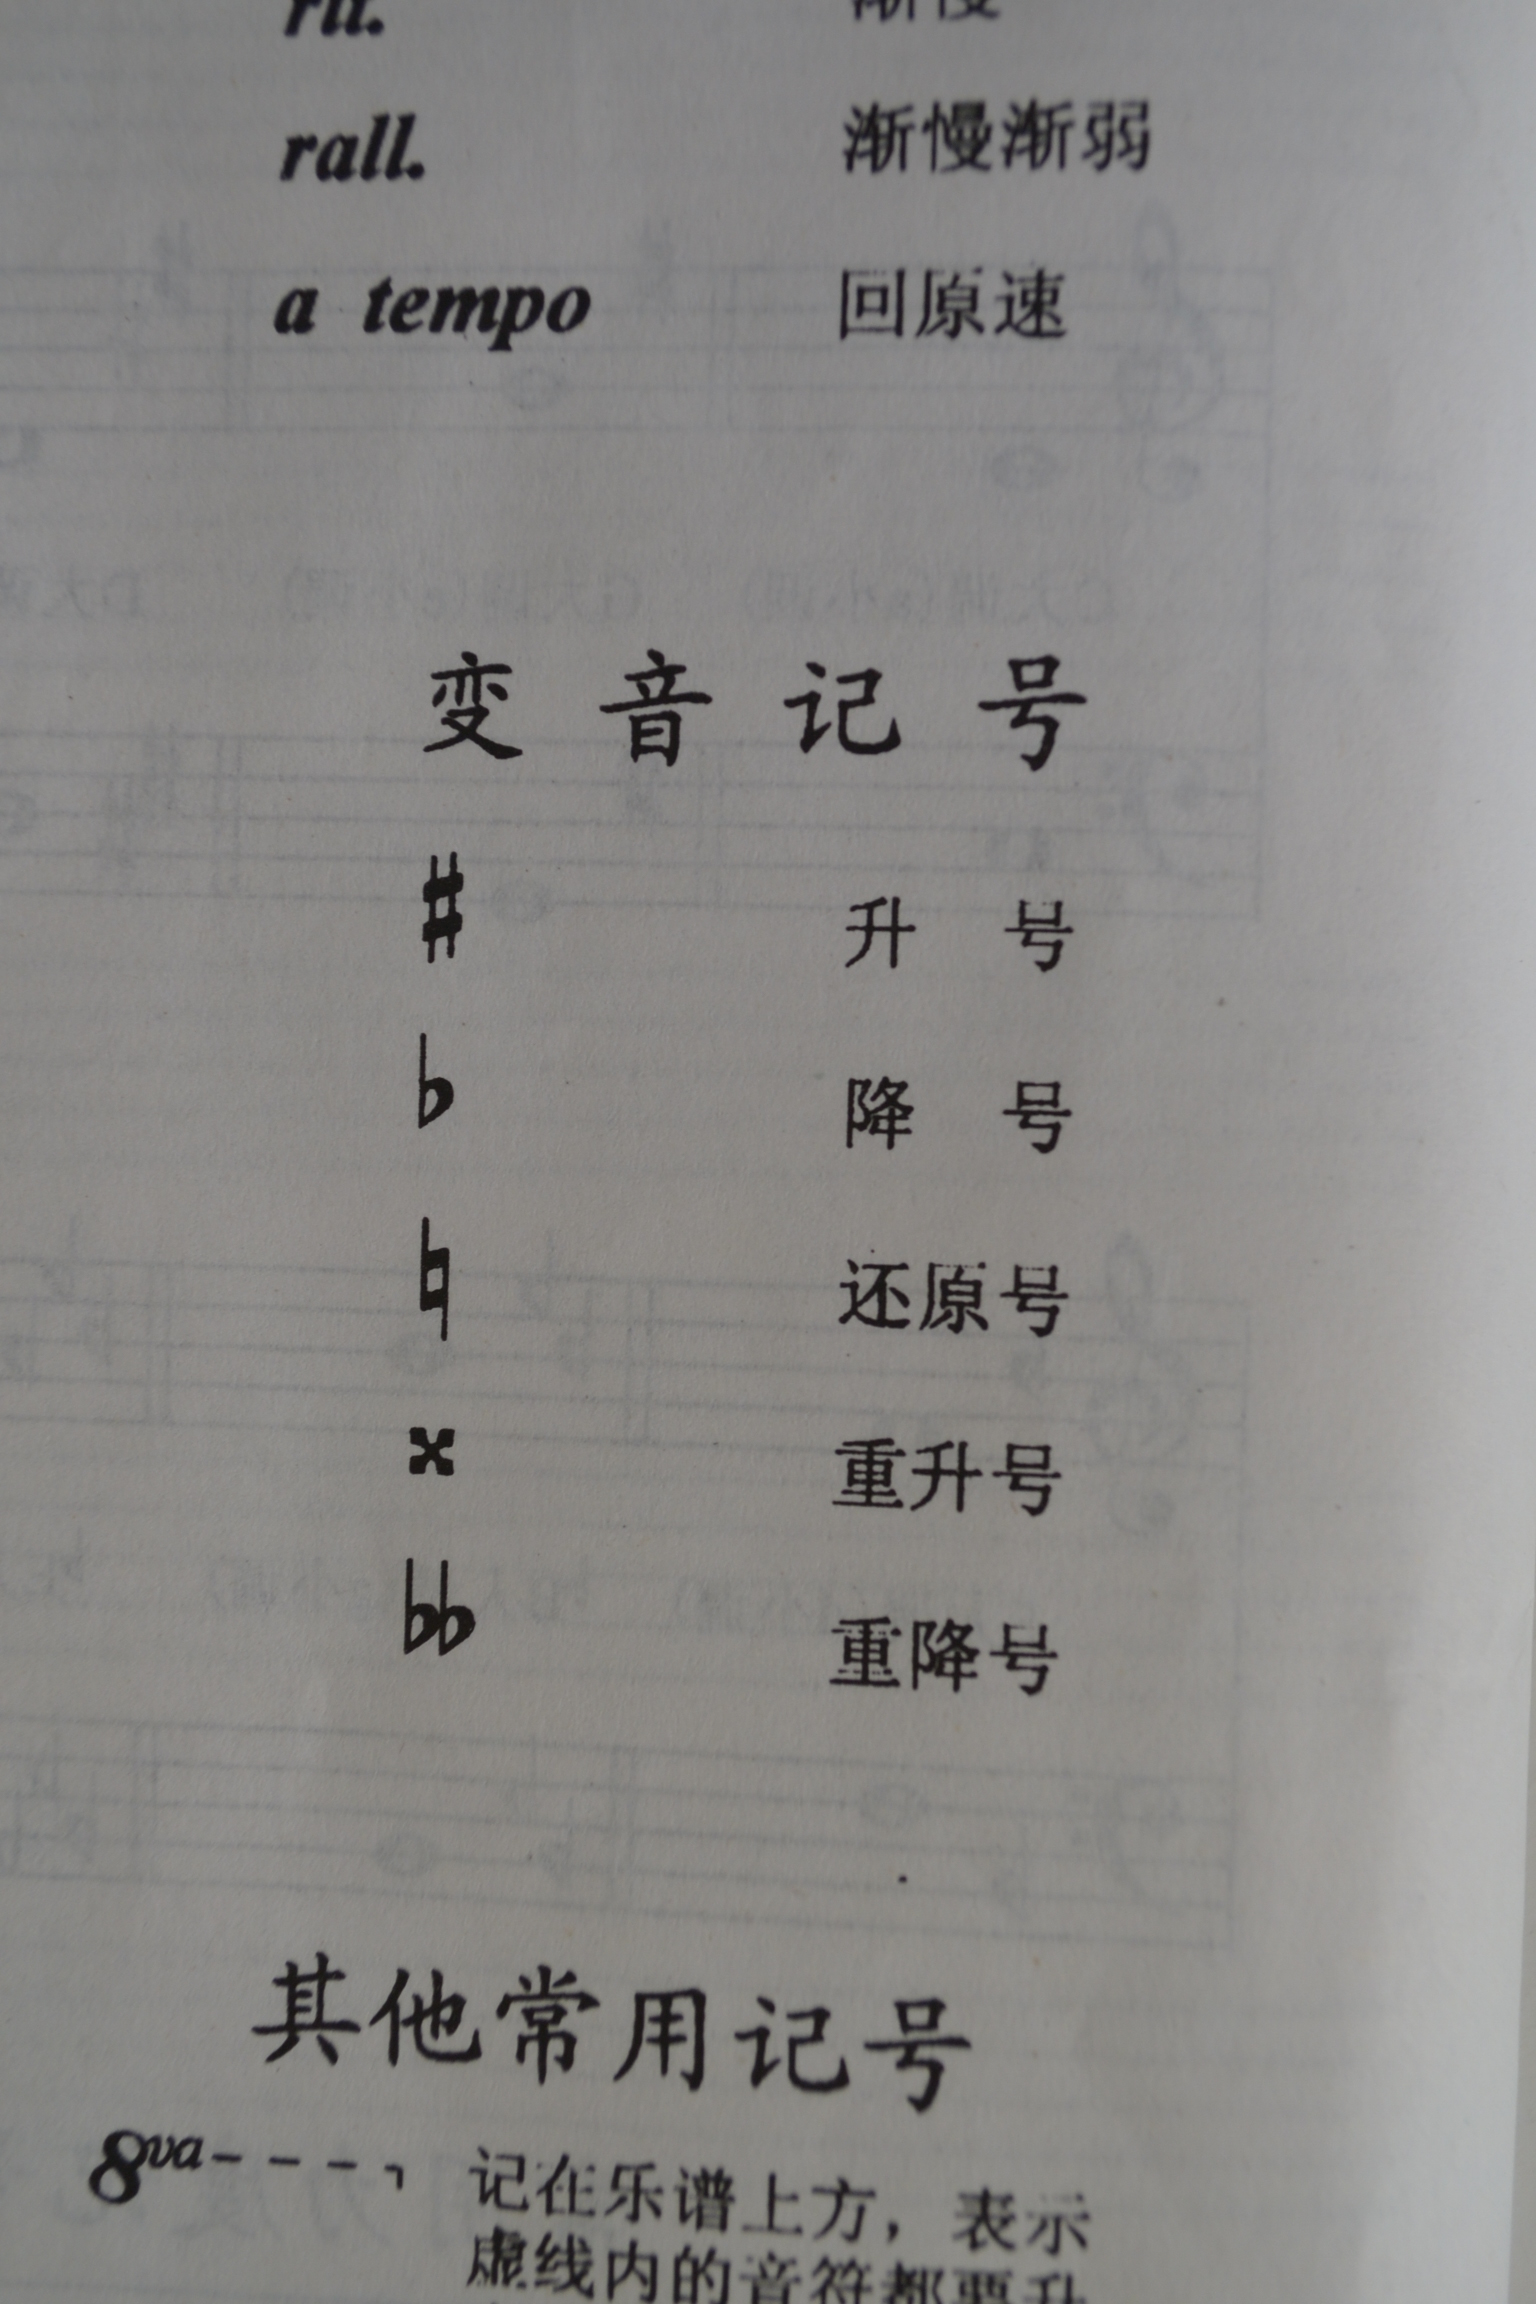 rit. 渐慢
rall. 渐慢渐弱
a tempo 回原速
变音记号
♯ 升号
♭ 降号
♮ 还原号
𝄪 重升号
𝄫 重降号
其他常用记号
8va----┐ 记在乐谱上方，表示
虚线内的音符都要升